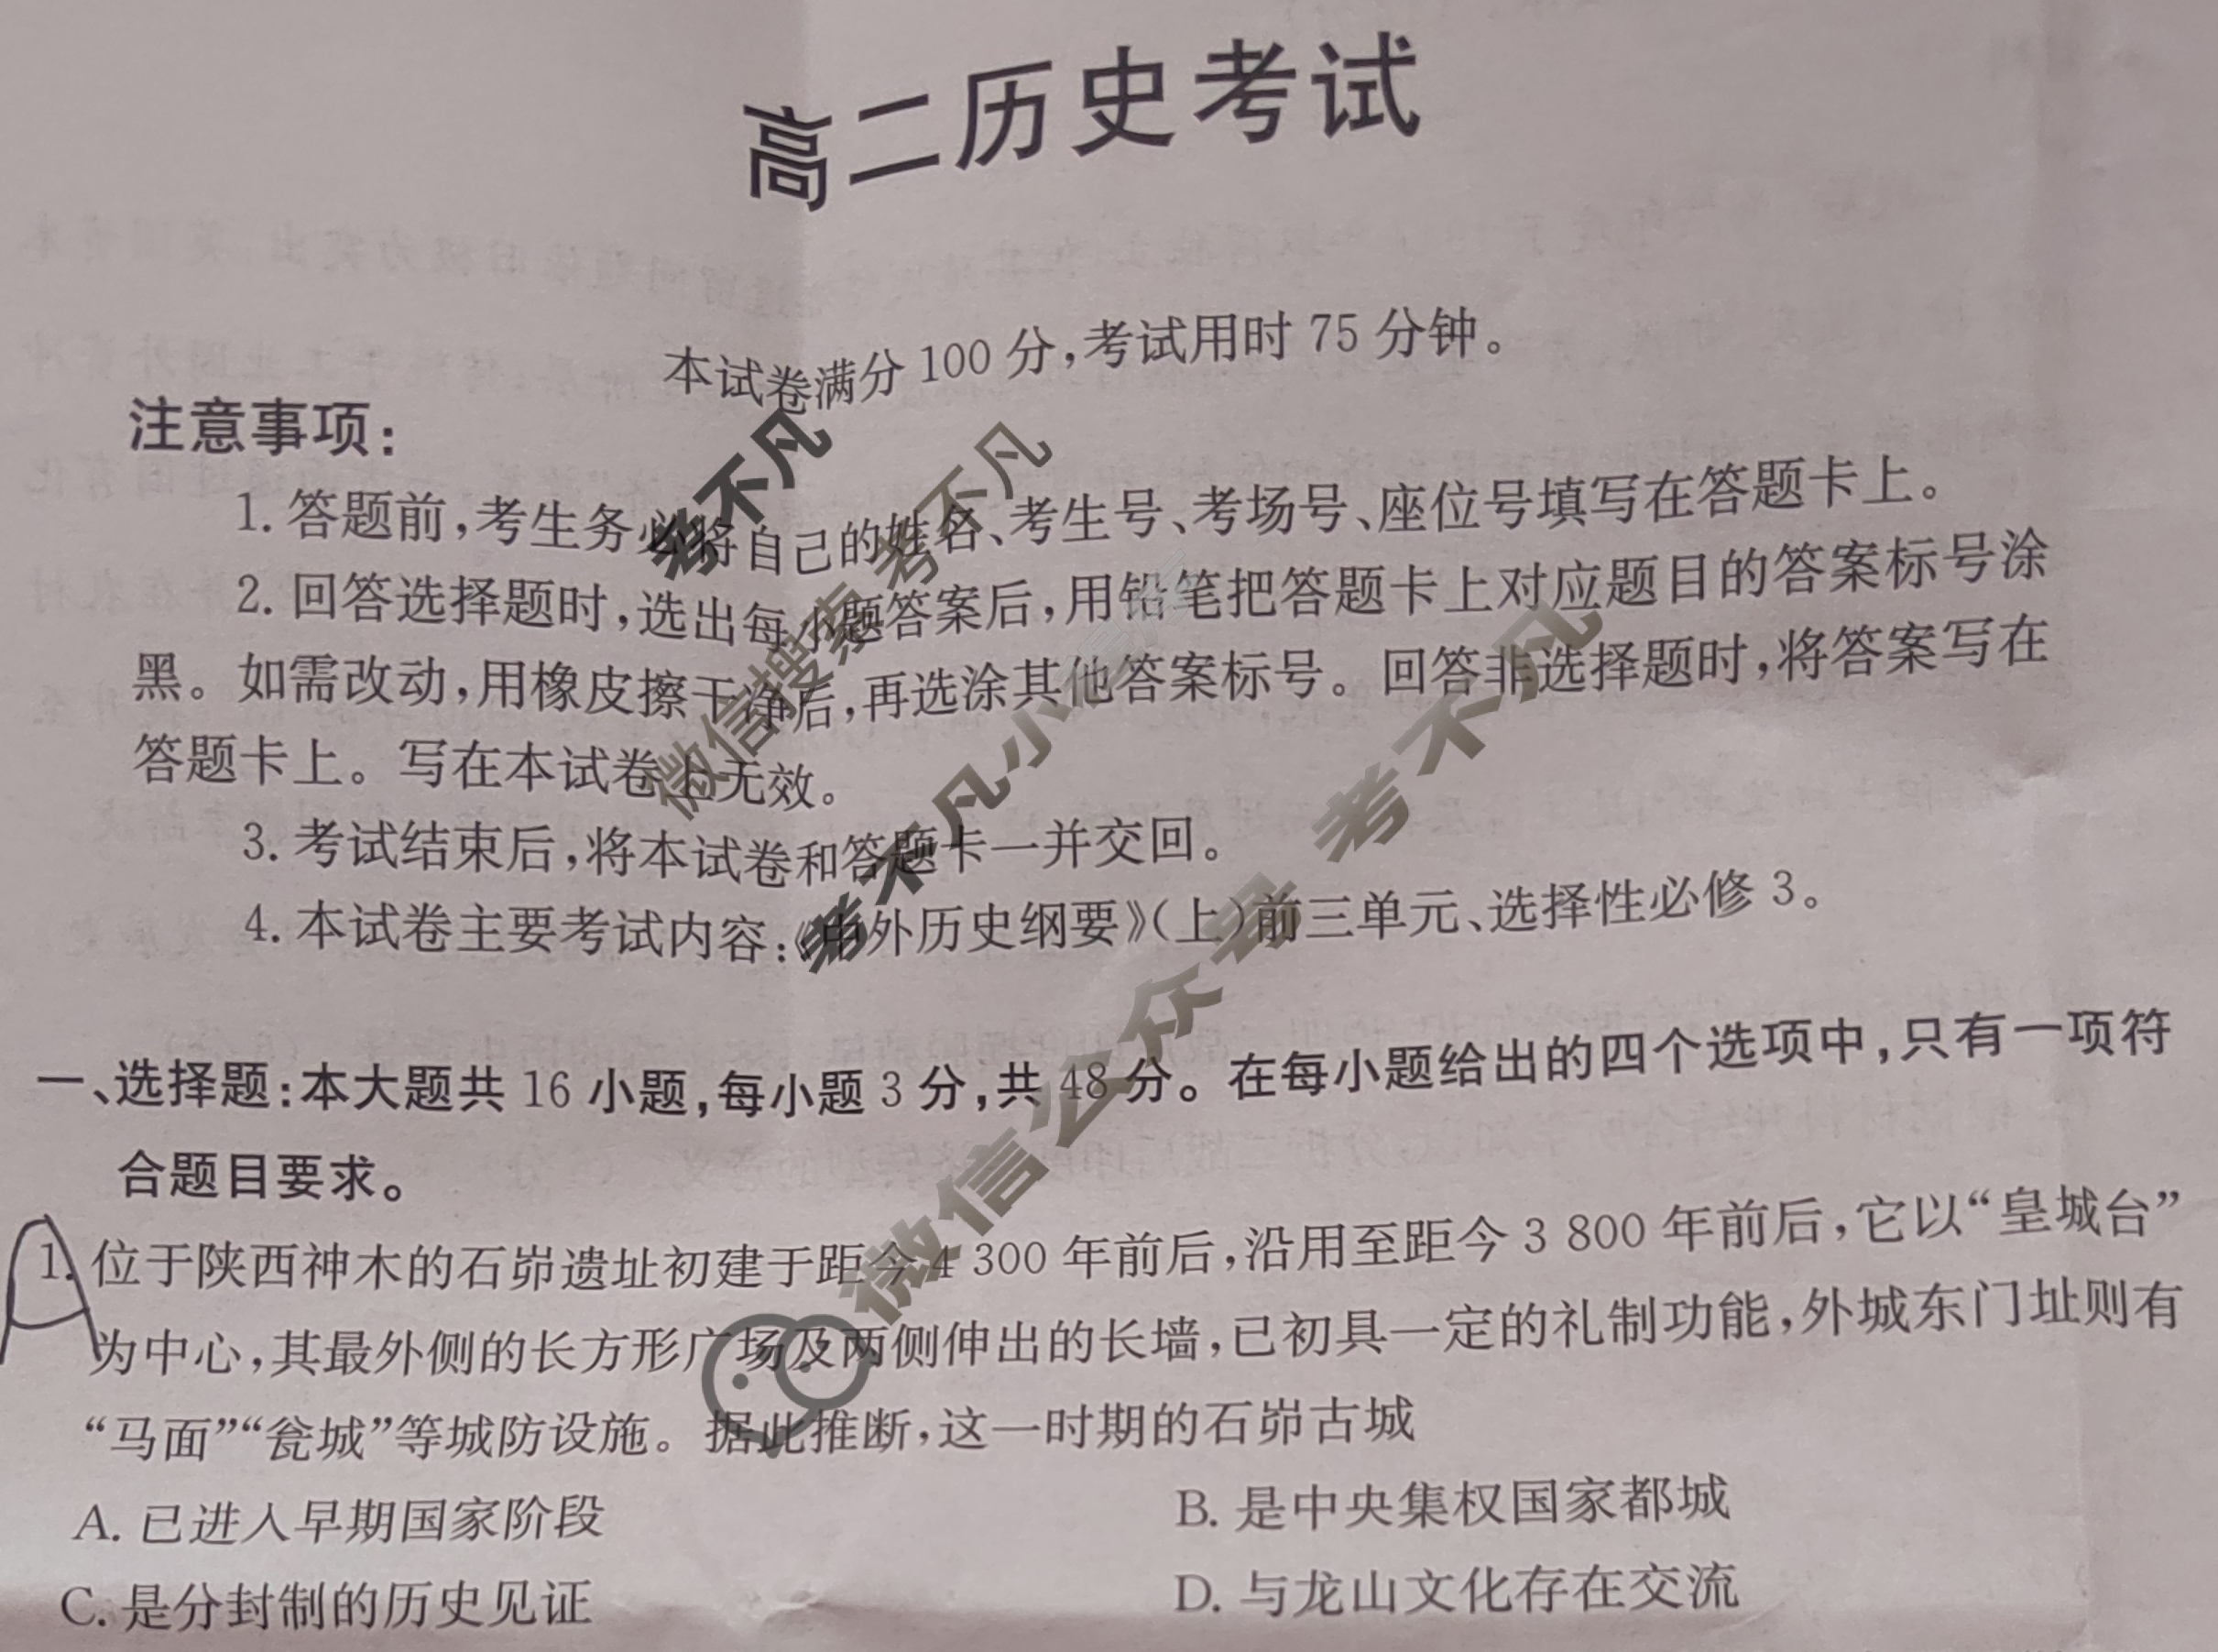 高二历史考试
本试卷满分 100 分，考试用时 75 分钟。
注意事项：
1. 答题前，考生务必将自己的姓名、考生号、考场号、座位号填写在答题卡上。
2. 回答选择题时，选出每小题答案后，用铅笔把答题卡上对应题目的答案标号涂
黑。如需改动，用橡皮擦干净后，再选涂其他答案标号。回答非选择题时，将答案写在
答题卡上。写在本试卷上无效。
3. 考试结束后，将本试卷和答题卡一并交回。
4. 本试卷主要考试内容：《中外历史纲要》（上）前三单元、选择性必修 3。
一、选择题：本大题共 16 小题，每小题 3 分，共 48 分。在每小题给出的四个选项中，只有一项符
合题目要求。
A
1. 位于陕西神木的石峁遗址初建于距今 4 300 年前后，沿用至距今 3 800 年前后，它以“皇城台”
为中心，其最外侧的长方形广场及两侧伸出的长墙，已初具一定的礼制功能，外城东门址则有
“马面”“瓮城”等城防设施。据此推断，这一时期的石峁古城
A. 已进入早期国家阶段
B. 是中央集权国家都城
C. 是分封制的历史见证
D. 与龙山文化存在交流
考不凡
微信搜索 考不凡
考不凡小程序
微信公众号 考不凡